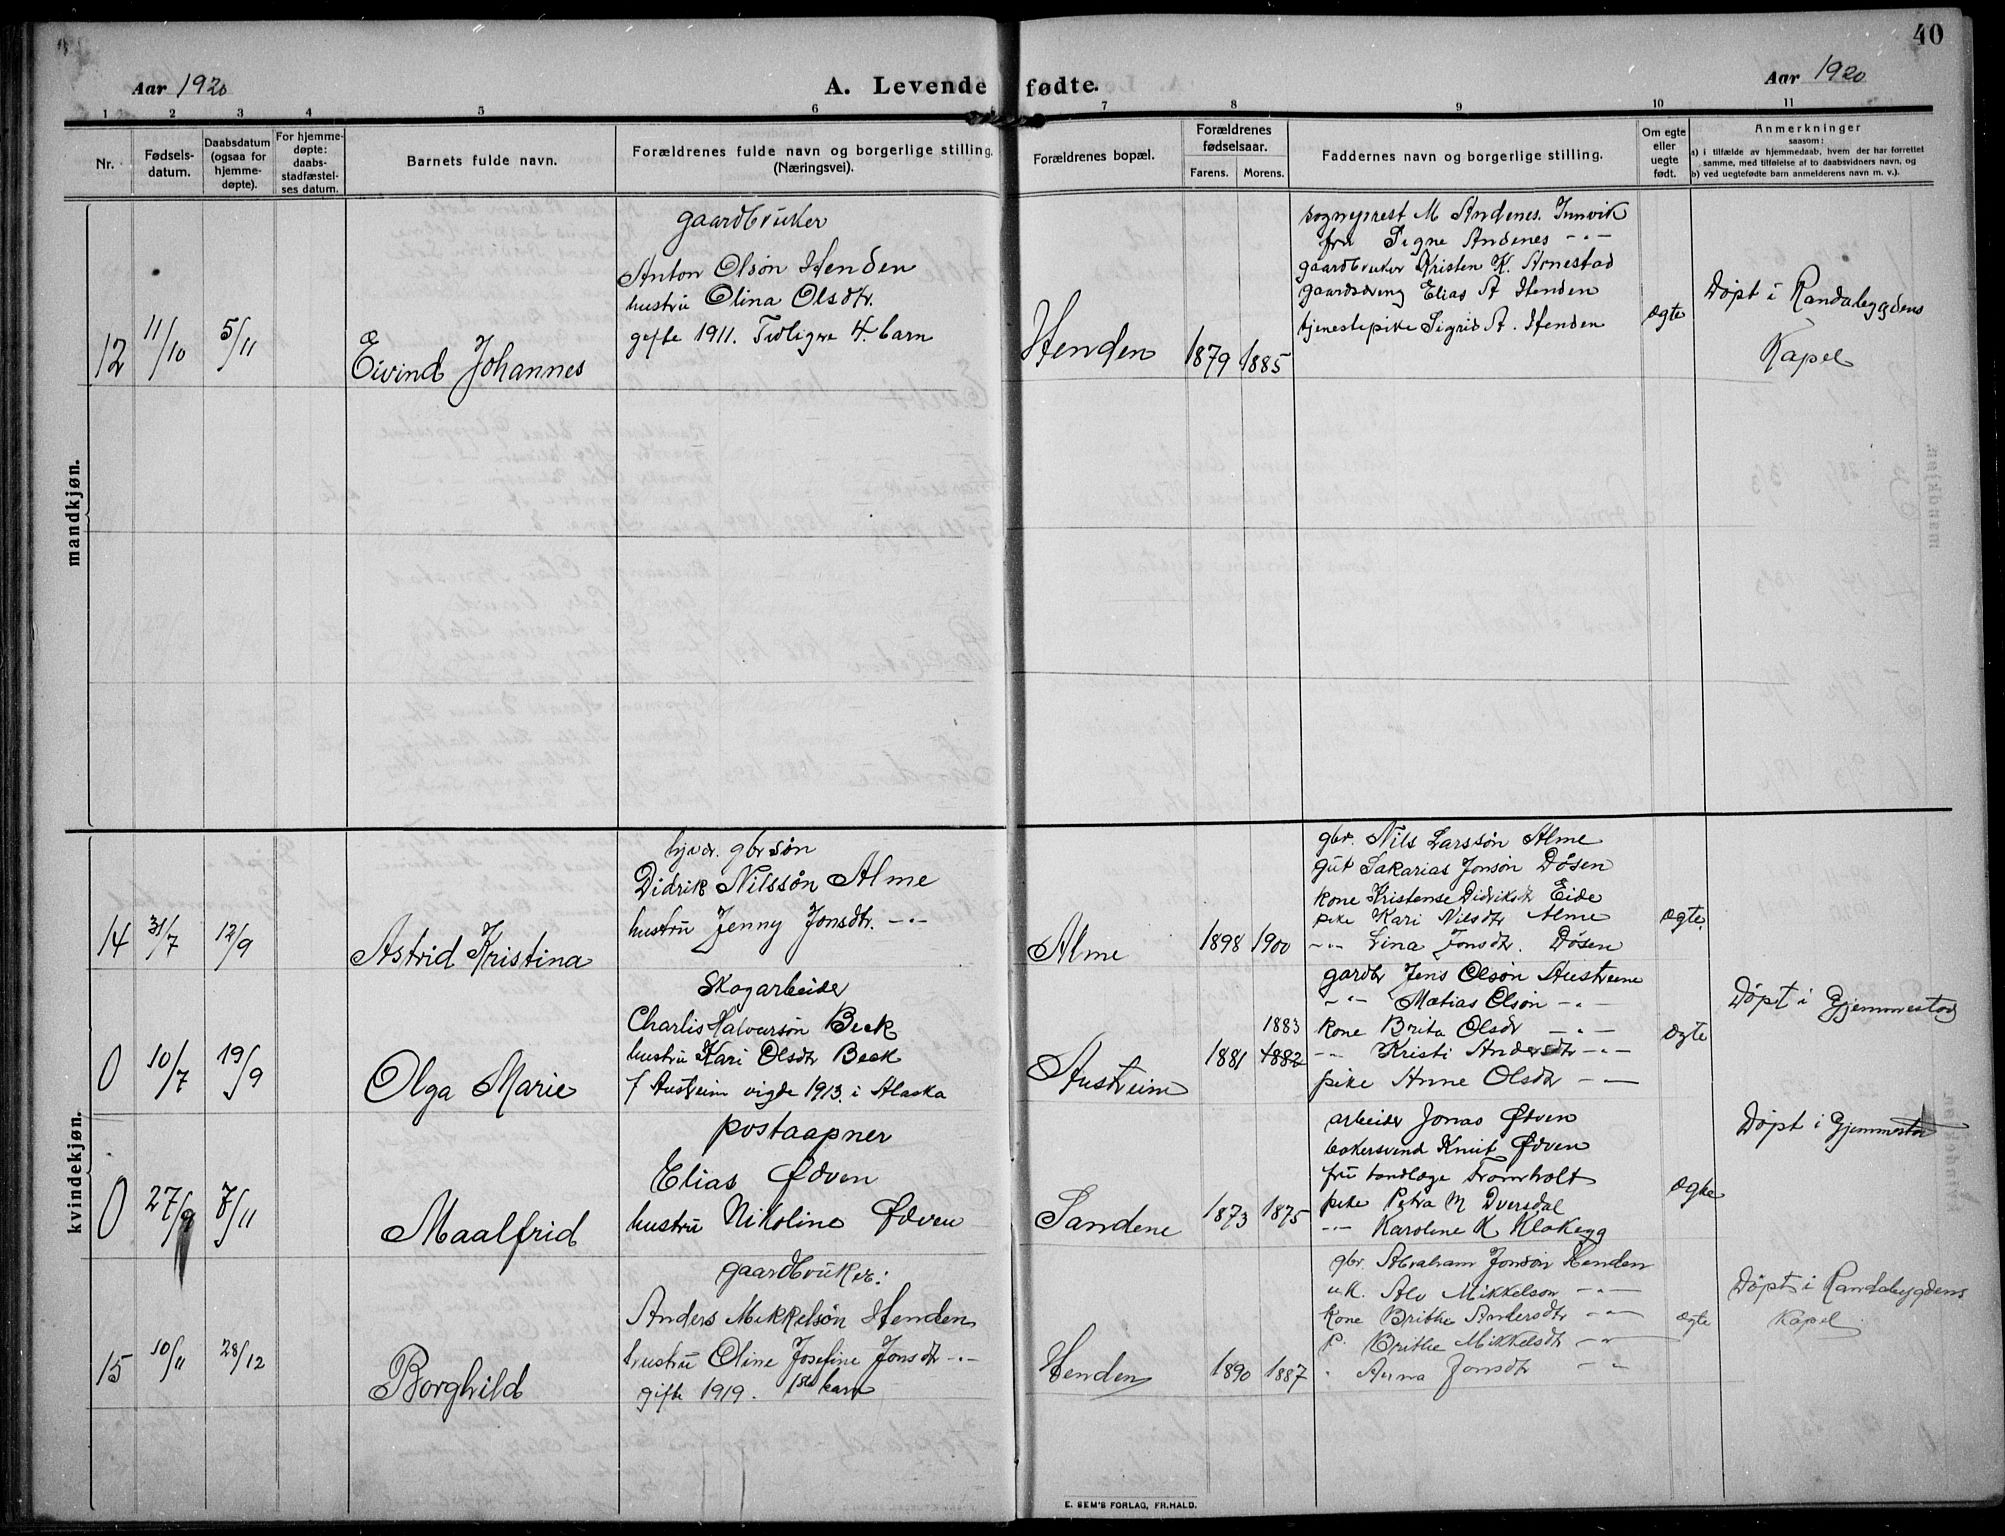 40
Aar 1920
A. Levende fødte.
Aar 1920
1 2 3 4 5 6 7 8 9 10 11
Nr.
Fødsels-
datum.
Daabsdatum
(ogsaa for
hjemme-
døpte).
For hjemme-
døpte:
daabs-
stadfæstel-
ses datum.
Barnets fulde navn.
Forældrenes fulde navn og borgerlige stilling.
(Næringsvei).
Forældrenes bopæl.
Forældrenes
fødselsaar.
Farens. Morens.
Faddernes navn og borgerlige stilling.
Om egte
eller
uegte
født.
Anmerkninger
saasom:
a) i tilfælde av hjemmedaab, hvem der har forrettet
samme, med tilføielse af to daabsvidners navn, og
b) ved uegtefødte barn anmelderens navn m. v.).
mandkjøn.
12
11/10
5/11
Eivind Johannes
gaardbruker
Anton Olsøn Henden
hustru Olina Olsdtr.
gifte 1911. Tidligere 4. barn
Henden
1879
1885
sogneprest M Andenes. Innvik
fru Signe Andenes -"-
gaardbruker Kristen K. Arnestad
gaardsdreng Elias A Henden
tjenestepike Sigrid A. Henden
ægte
Døpt i Randabygdens
Kapel
kvindekjøn.
14
31/7
12/9
Astrid Kristina
gbr søn
Didrik Nilssøn Alme
hustru Jenny Jonsdtr. -"-
Alme
1898
1900
gbr. Nils Larssøn Alme
gut Sakarias Jonsøn Døsen
kone Kristense Didriksdr Eide
pike Kari Nilsdtr Alme
-"- Lina Jonsdtr. Døsen
ægte.
0
10/7
19/9
Olga Marie
Skogarbeider
Charlis Halvorsøn Beck
hustru Kari Olsdtr Beck
f Austreim vigde 1913. i Alaska
Austreim
1881
1883
1882
gardbr Jens Olsøn Austreim
-"- Matias Olsøn -"-
kone Brita Olsdr -"-
-"- Kristi Andersdtr -"-
pike Anne Olsdtr -"-
ægte
Døpt i Gjemmestad
0
27/9
7/11
Maalfrid
postaapner
Elias Ødven
hustru Nikoline Ødven
Sandene
1873
1875
arbeider Jonas Ødven
bakersvend Knut Ødven
fru tandlæge Tromholt
pike Petra M Dversdal
-"- Karoline K Klakegg
ægte
Døpt i Gjemmestad
15
10/11
28/12
Borghild
gaardbruker:
Anders Mikkelsøn Henden
hustru Oline Josefine Jonsdtr -"-
gifte 1919. 1ste barn
Henden
1890
1887
gbr. Abraham Jonsøn Henden
u.k. Alv Mikkelson -"-
Kone Brithe Andersdtr -"-
p. Brithe Mikkelsdtr -"-
" Anna Jonsdtr -"-
ægte
Døpt i Randabygdens
Kapel
E. SEM'S FORLAG, FR.HALD.